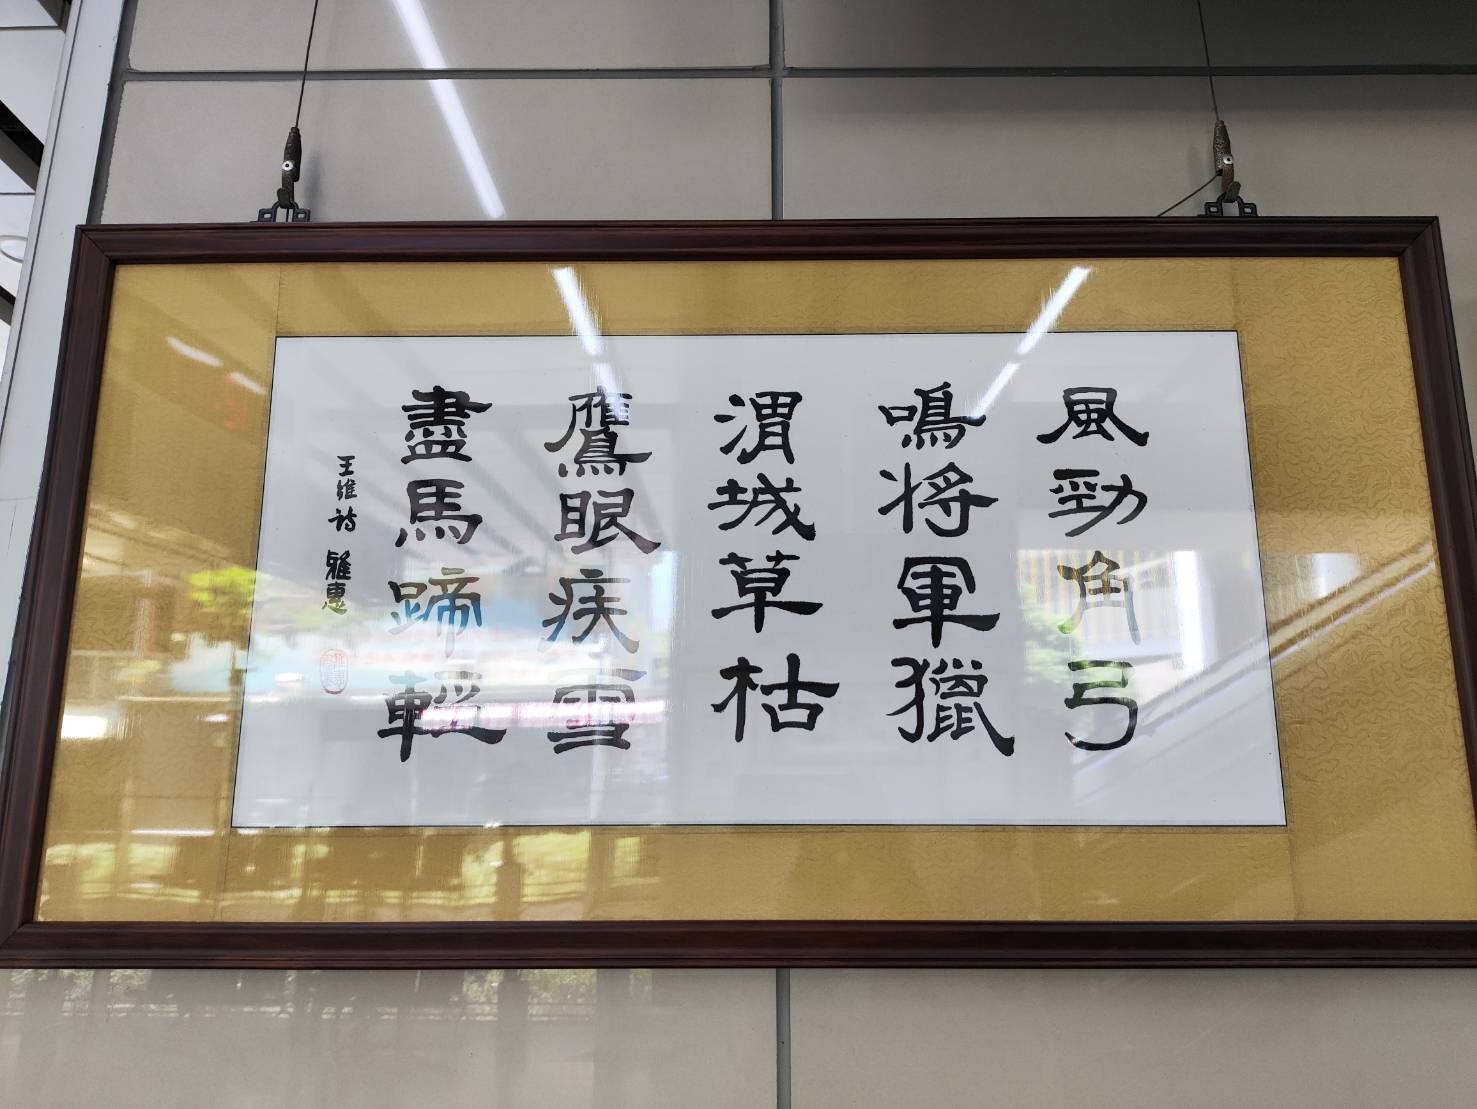 風勁角弓
鳴將軍獵
渭城草枯
鷹眼疾雪
盡馬蹄輕
王維詩 雅惠